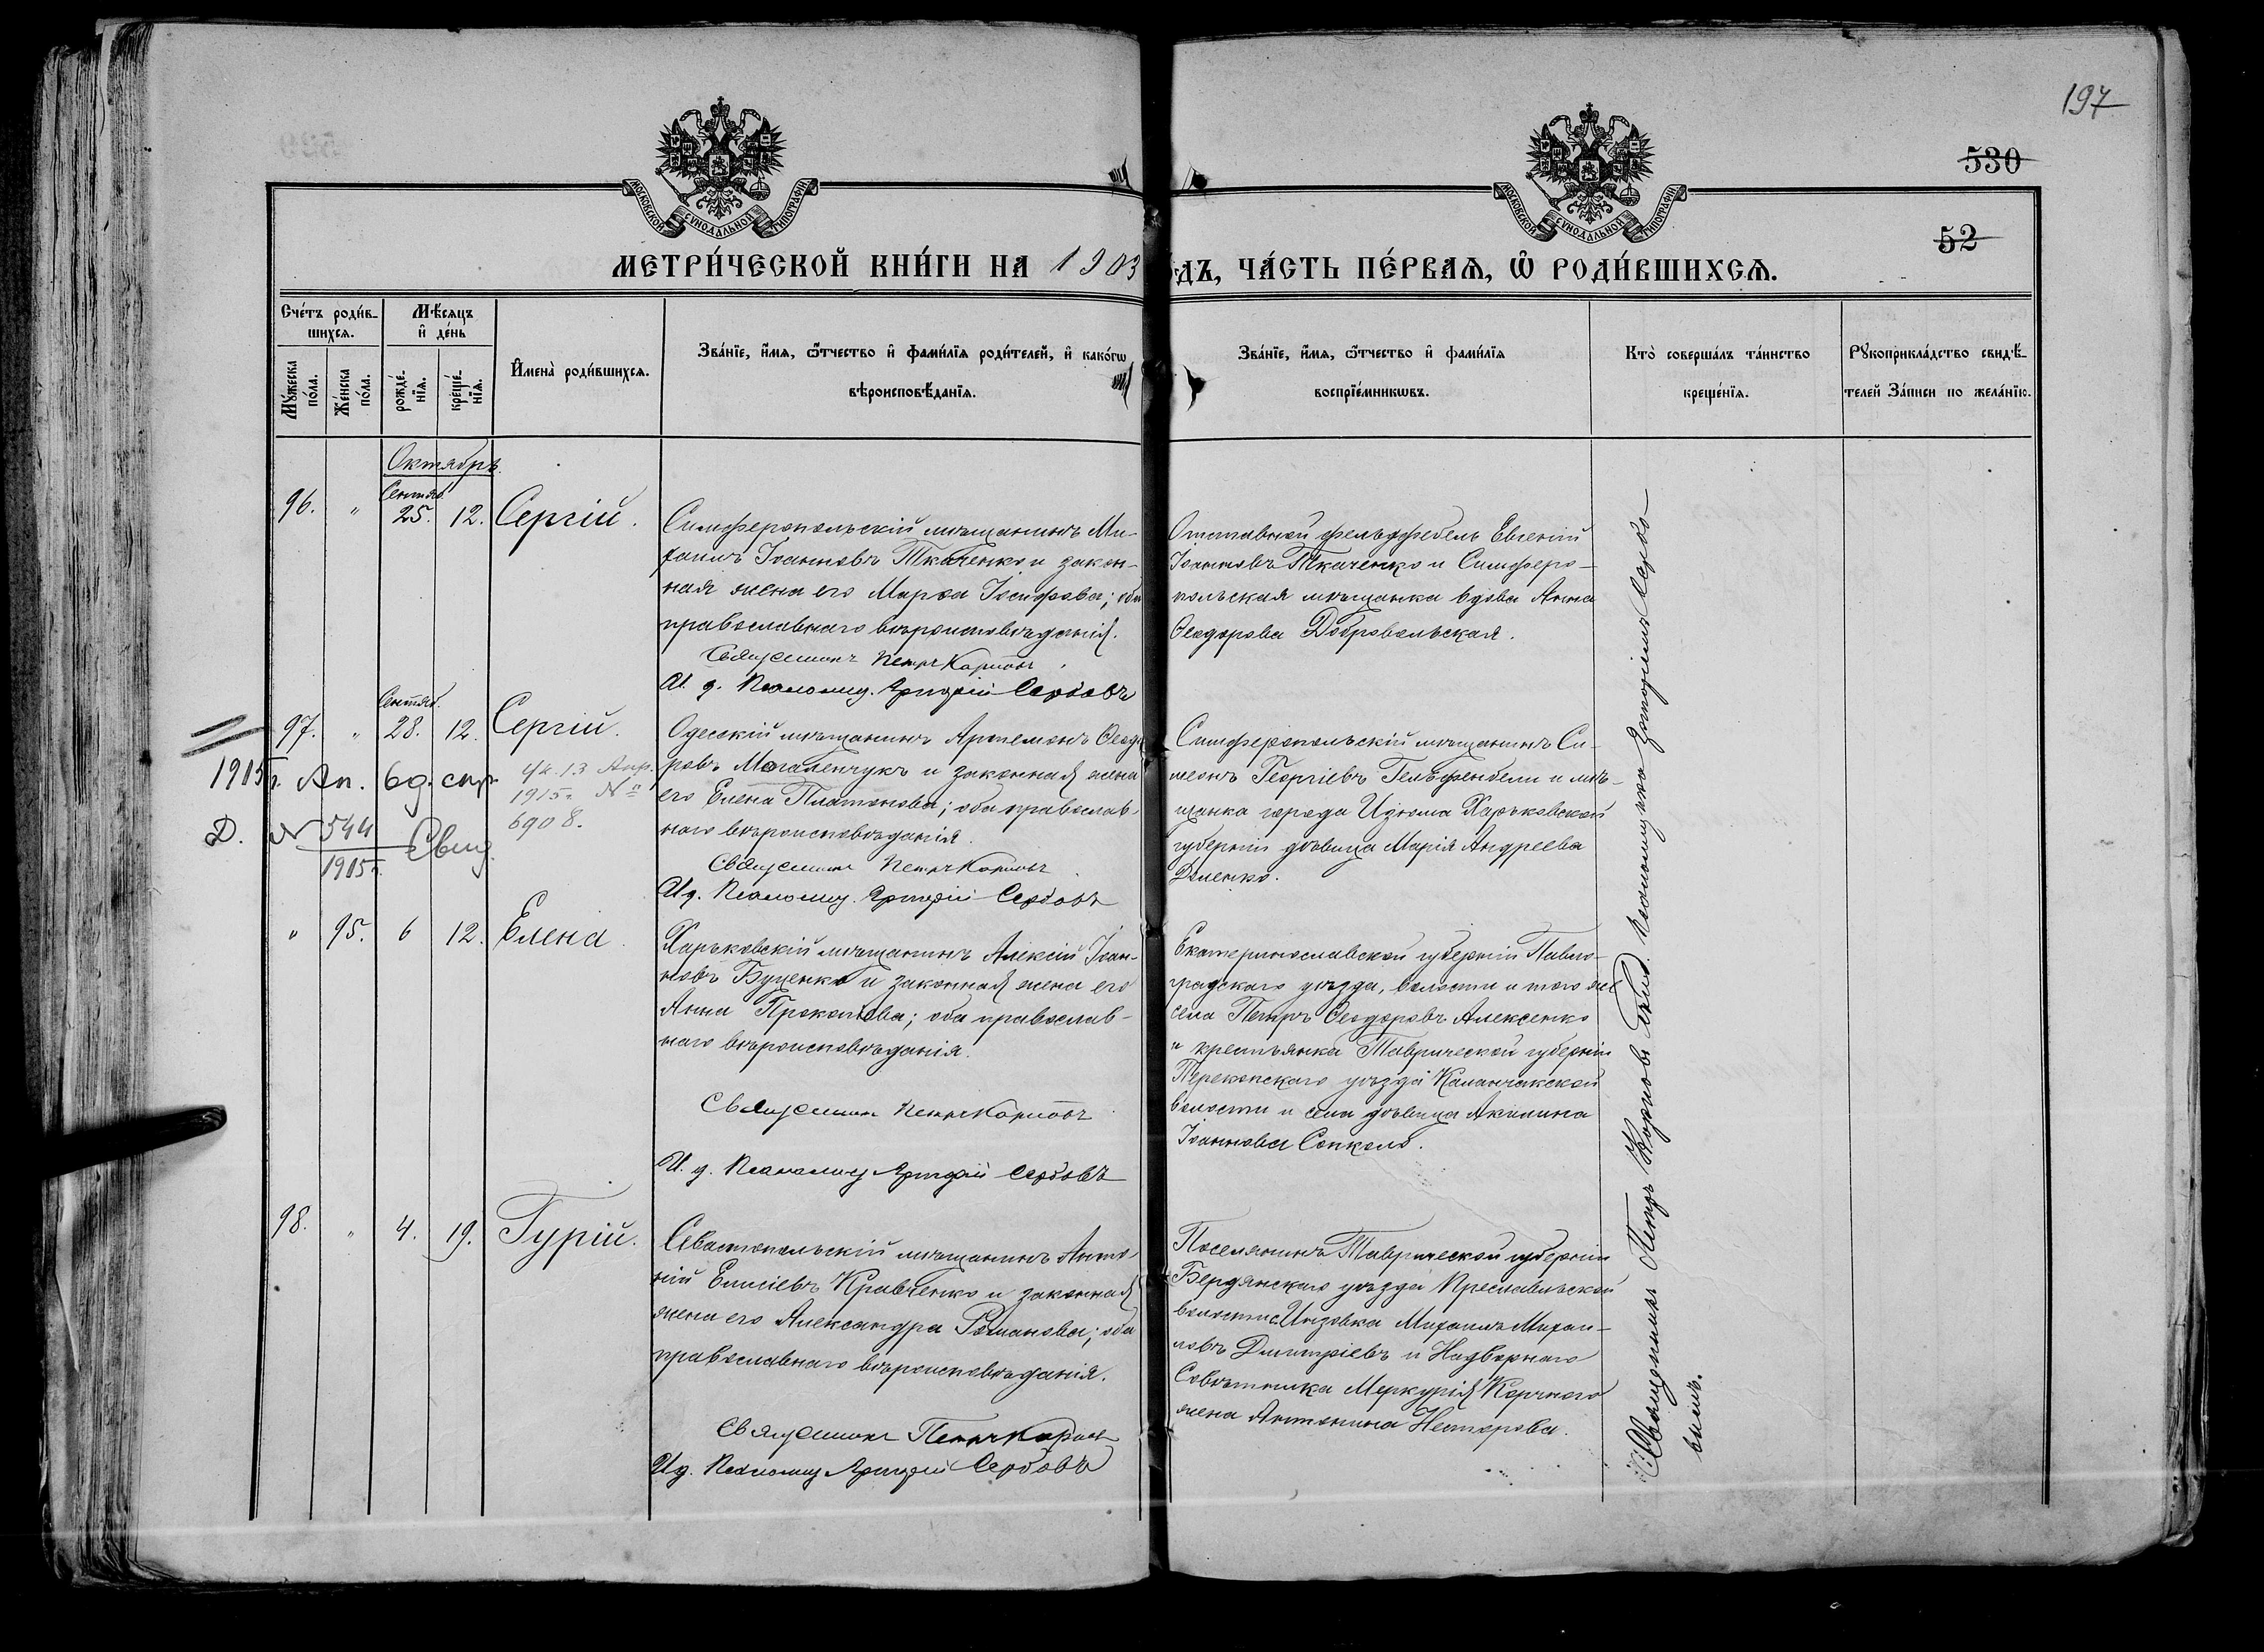 197
530
52
МОСКОВСКОЙ СѴНОДАЛЬНОЙ ТИПОГРАФІИ
МОСКОВСКОЙ СѴНОДАЛЬНОЙ ТИПОГРАФІИ
МЕТРИ́ЧЕСКОЙ КНИ́ГИ НА 1903
ДЪ, ЧА́СТЬ ПЕ́РВАЯ, Ѡ РОДИ́ВШИХСЯ.
Сче́тъ роди́в-
шихся.
Мѣ́сяцъ
и де́нь
Му́жеска
по́ла.
Же́нска
по́ла.
рожде́-
нія.
креще́-
нія.
Имена̀ роди́вшихся.
Зва́ніе, и́мя, ѻ́тчество и фами́лія роди́телей, и како́гѡ
вѣроисповѣ́данія.
Зва́ніе, и́мя, ѻ́тчество и фами́лія
воспріе́мникѡвъ.
Кто̀ соверша́лъ та́инство
креще́нія.
Рꙋкоприкла́дство свидѣ́-
телей за́писи по жела́нію.
Октябрь.
96. " Сентяб. 25. 12. Сергій.
Симферопольскій мѣщанинъ Ми-
хаилъ Іоанновъ Ткаченко и закон-
ная жена его Марѳа Іосифова; оба
православнаго вѣроисповѣданія.
Священникъ Петръ Карповъ
И. д. Псаломщ. Григорій Сербовъ
Отставной фельдфебель Евгеній
Іоанновъ Ткаченко и Симферо-
польская мѣщанка вдова Анна
Ѳеодорова Добровольская.
97. " Сентяб. 28. 12. Сергій.
1915г. Ап. 6 д. спр.
Ук. 13 Апр.
1915г. №
6908.
Д. № 544
1915г. Свид.
Одесскій мѣщанинъ Артемонъ Ѳеодо
ровъ Магаленчукъ и законная жена
его Елена Платонова; оба православ-
наго вѣроисповѣданія.
Священникъ Петръ Карповъ
И д. Псаломщ. Григорій Сербовъ
Симферопольскій мѣщанинъ Си-
меонъ Георгіевъ и мѣ-
щанка города Изюма Харьковской
губерніи дѣвица Марія Андреева
" 95. 6 12. Елена
Харьковскій мѣщанинъ Алексій Іоан-
новъ Буценко и законная жена его
Анна Прокопіева; оба православ-
наго вѣроисповѣданія.
Священникъ Петръ Карповъ
И. д. Псаломщ Григорій Сербовъ
Екатеринославской губерніи Павло-
градскаго уѣзда, волости и того же
села Петръ Ѳеодоровъ Алексенко
и крестьянка Таврической губерніи
Перекопскаго уѣзда Каланчакской
волости и села дѣвица Акилина
Іоаннова Сокколъ.
98. " 4. 19. Гурій.
Севастопольскій мѣщанинъ Анто-
ній Елисіевъ Кравченко и законная
жена его Александра Романова; оба
православнаго вѣроисповѣданія.
Священникъ Петръ Карповъ
И д. Псаломщ Григорій Сербовъ
Поселянинъ Таврической губерніи
Бердянскаго уѣзда Преславльской
волости с. Инзовка Михаилъ Михаи-
ловъ Дмитріевъ и Надворнаго
Совѣтника Меркурія Корчнаго
жена Антонина Несторова.
Священникъ Петръ Карповъ съ псаломщикомъ Григоріемъ Сербо-
вымъ.